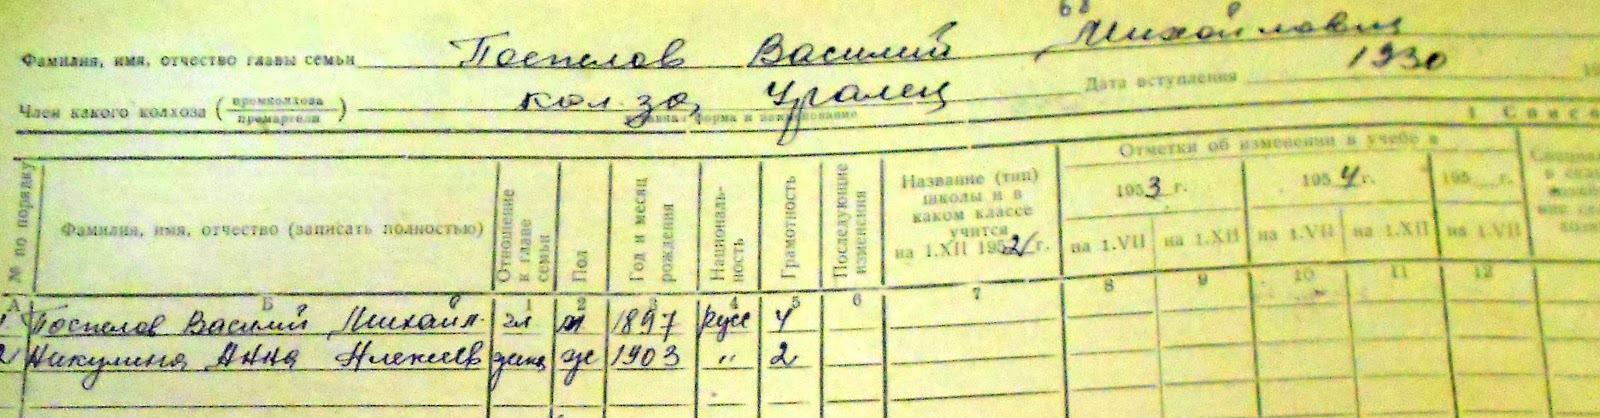 Фамилия, имя, отчество главы семьи Поспелов Василий Михайлович
Член какого колхоза (промколхоза промартели) кол-за Уралец Дата вступления 1930
название форма и наименование
I Списо
№ по порядку Фамилия, имя, отчество (записать полностью) Отношение к главе семьи Пол Год и месяц рождения Националь-ность Грамотность Последующие изменения Название (тип) школы и в каком классе учится на 1.XII 1952 г. Отметки об изменении в учебе в
1953 г. 1954 г. 195 г.
на 1.VII на 1.XII на 1.VII на 1.XII на 1.VII
А Б 1 2 3 4 5 6 7 8 9 10 11 12
1 Поспелов Василий Михайл. гл м 1897 русс 4
2 Никулина Анна Алексеев жена ж 1903 " 2